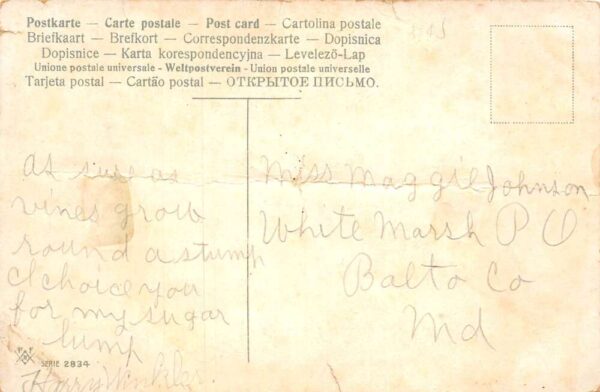 Postkarte — Carte postale — Post card — Cartolina postale
Briefkaart — Brefkort — Correspondenzkarte — Dopisnica
Dopisnice — Karta korespondencyjna — Levelező-Lap
Unione postale universale - Weltpostverein - Union postale universelle
Tarjeta postal — Cartão postal — ОТКРЫТОЕ ПИСЬМО.
As sure as
vines grow
round a stump
I choice you
for my sugar
lump
Harry Winkler.
SERIE 2834
Miss Maggie Johnson
White Marsh P O
Balto Co
Md